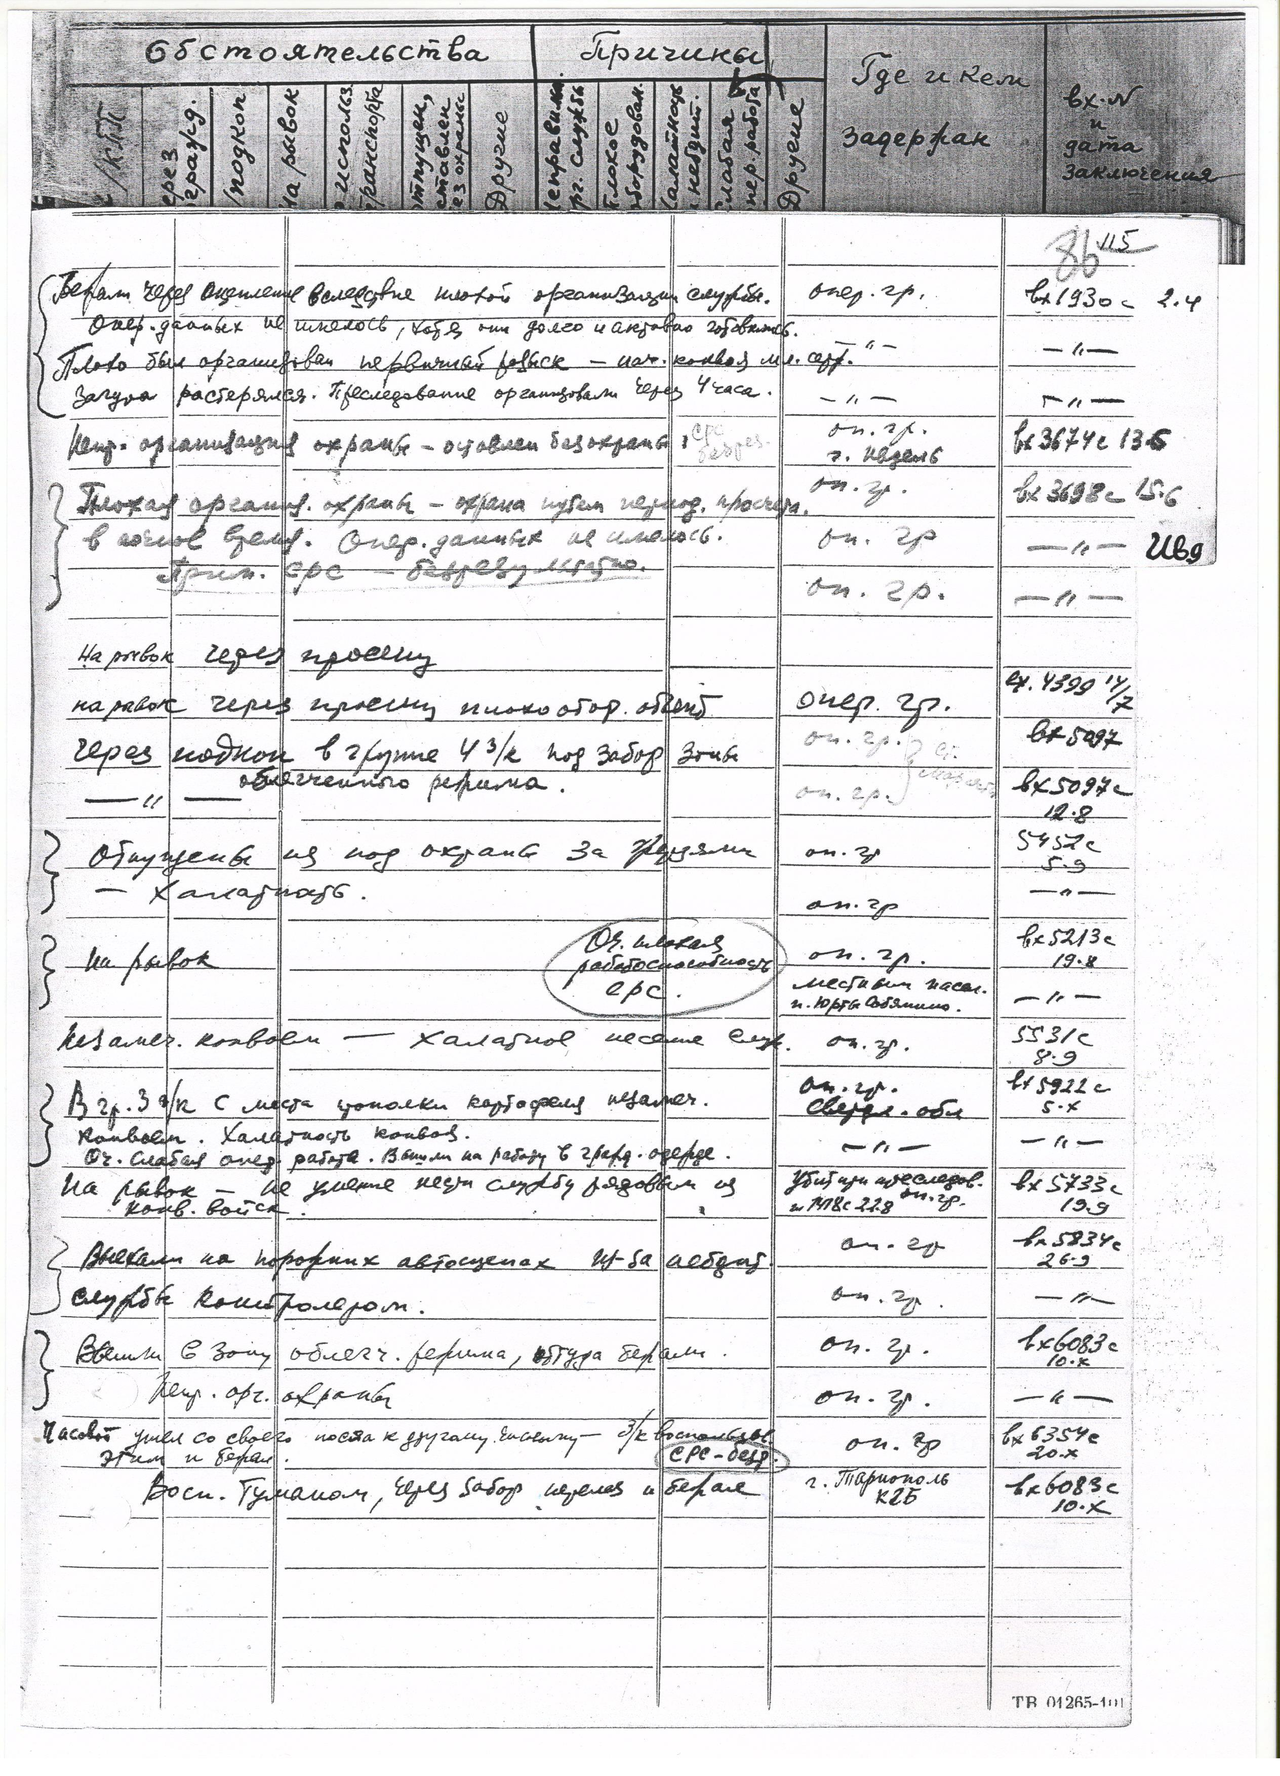 Обстоятельства
Причины
Где и кем
задержан
вх. N
и
дата
заключения
/КПП
через
заград.
подкоп
На рывок
с использ.
транспорта
Другие
Неправильн.
орг. службы
Плохое
оборудован.
Халатность
слабая
опер. работа
Другие
86 115
Бежали через оцепление вследствие плохой организации службы. опер. гр. вх 1930с 2.4
Опер. данных не имелось, хотя они долго и активно готовились.
Плохо был организован первичный розыск — нач. конвоя мл. серж. —"— —"—
растерялся. Преследование организовали через 4 часа. —"— —"—
Непр. организация охраны — оставлен без охраны, срс безрез. оп. гр. вх 3674с 13.6
Плохая органия. охраны — охрана путем период. просчета. оп. гр. вх 3698с 15.6
в ночное время. Опер. данных не имелось. оп. гр —"—
Прим. СРС — безрезультатно. оп. гр. —"—
На рывок через просеку
на рывок через просеку плохо обор. объект опер. гр. вх. 4399 14/7
Через подкоп в группе 4 з/к под забор зоны оп. гр. вх 5097
—"— облегченного режима. оп. гр. вх 5097с
12.8
Отпущены из под охраны за оп. гр 5452с
5.9
— Халатность. оп. гр —"—
На рывок Оч. плохая работоспособность СРС. оп. гр. вх 5213с
19.8
местным насел. —"—
Незамеч. конвоем — Халатное несение служ. оп. гр. 5531с
8.9
В гр. 3 з/к с места прополки картофеля незамеч. оп. гр. вх 5922с
Свердл. обл 5.X
конвоем. Халатность конвоя. —"— —"—
Оч. слабая опер. работа. Вышли на работу в гражд. одежде.
На рывок — не умение нести службу рядовым из Убит при преследов. вх 5733с
конв. войск. оп. гр. 19.9
Выехали на порожних автосцепах из-за небдит. оп. гр вх 5834с
26.9
службы контролером. оп. гр. —"—
Вышли в зону облегч. режима, оттуда бежали. оп. гр. вх 6083с
10.X
Непр. орг. охраны оп. гр. —"—
Часовой ушел со своего поста к другому часовому — з/к воспользов. оп. гр вх 6354с
этим и бежал. СРС - безр. 20.X
Восп. Туманом, через забор перелез и бежал г. Тарнополь вх 6083с
КГБ 10.X
ТВ 01265-101